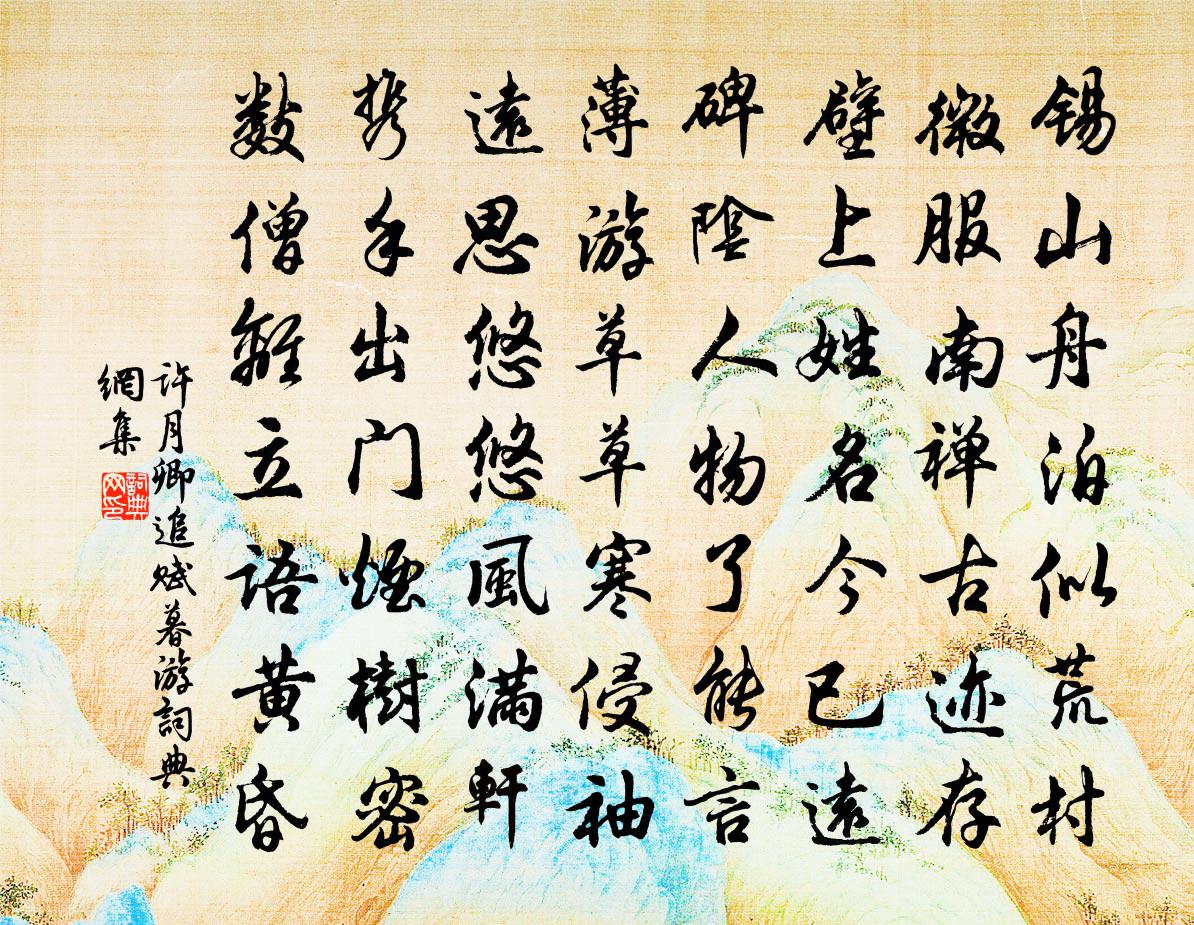 锡山舟泊似荒村
微服南禅古迹存
壁上姓名今已远
碑陰人物了能言
薄游草草寒侵袖
遠思悠悠風滿軒
携手出门煙樹密
数僧離立语黄昏
许月卿追赋暮游詞典
網集
詞典
网印